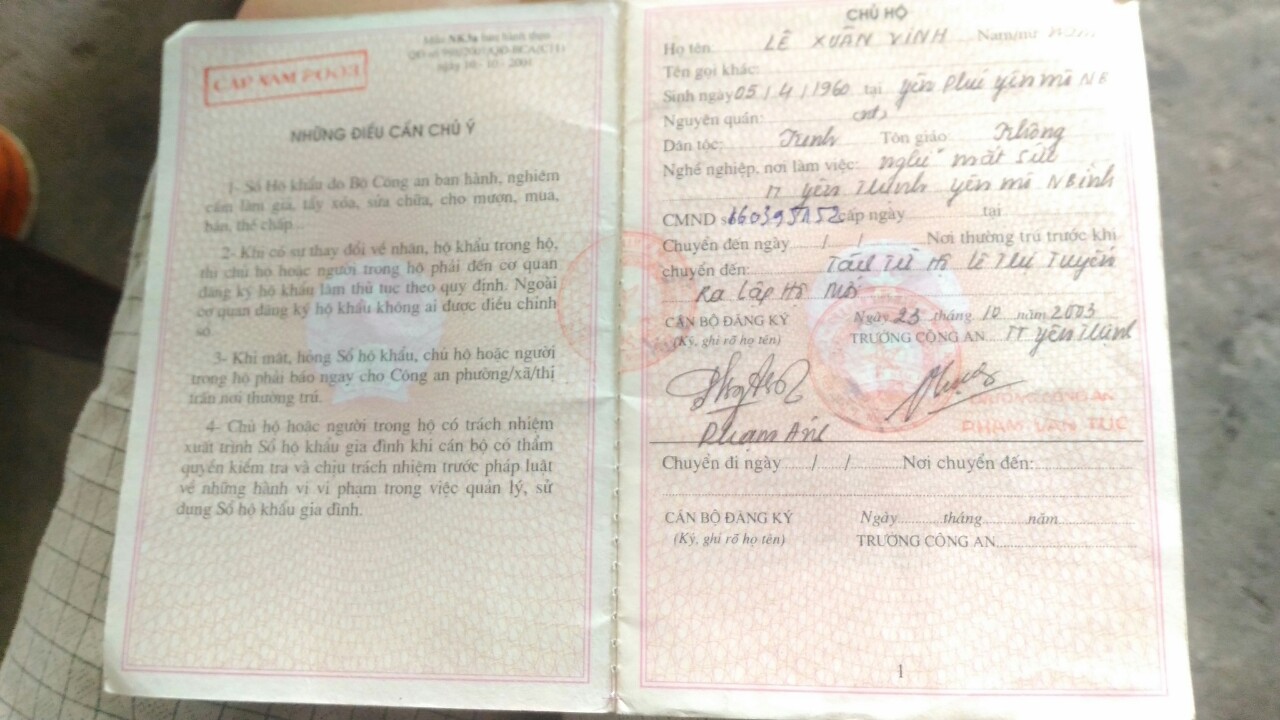 Mẫu NK3a ban hành theo
ngày 10 - 10 - 2001
CẤP NĂM 2003
NHỮNG ĐIỀU CẦN CHÚ Ý
1- Sổ Hộ khẩu do Bộ Công an ban hành, nghiêm
cấm làm giả, tẩy xóa, sửa chữa, cho mượn, mua,
bán, thế chấp.
2- Khi có sự thay đổi về nhân, hộ khẩu trong hộ,
thì chủ hộ hoặc người trong hộ phải đến cơ quan
đăng ký hộ khẩu làm thủ tục theo quy định. Ngoài
cơ quan đăng ký hộ khẩu không ai được điều chỉnh
sổ.
3- Khi mất, hỏng Sổ hộ khẩu, chủ hộ hoặc người
trong hộ phải báo ngay cho Công an phường/xã/thị
trấn nơi thường trú.
4- Chủ hộ hoặc người trong hộ có trách nhiệm
xuất trình Sổ hộ khẩu gia đình khi cán bộ có thẩm
quyền kiểm tra và chịu trách nhiệm trước pháp luật
về những hành vi vi phạm trong việc quản lý, sử
dụng Sổ hộ khẩu gia đình.
CHỦ HỘ
Họ tên LÊ XUÂN VINH Nam/nữ
Tên gọi khác:
Sinh ngày 05 / 4 / 1960 tại yên Phú yên mô NB
Nguyên quán:
Dân tộc: Kinh Tôn giáo: Không
Nghề nghiệp, nơi làm việc: nghỉ mất sức
TT yên Thịnh yên mô NBình
CMND số cấp ngày tại
Chuyển đến ngày / / Nơi thường trú trước khi
chuyển đến: Tách Từ Hộ Lê Thị Tuyên
Ra lập Hộ mới
CÁN BỘ ĐĂNG KÝ Ngày 23 tháng 10 năm 2003
(Ký, ghi rõ họ tên) TRƯỞNG CÔNG AN TT yên Thịnh
TRƯỞNG CÔNG AN
Phạm PHẠM VĂN TÚC
Chuyển đi ngày / / Nơi chuyển đến:
CÁN BỘ ĐĂNG KÝ Ngày tháng năm
(Ký, ghi rõ họ tên) TRƯỞNG CÔNG AN
1